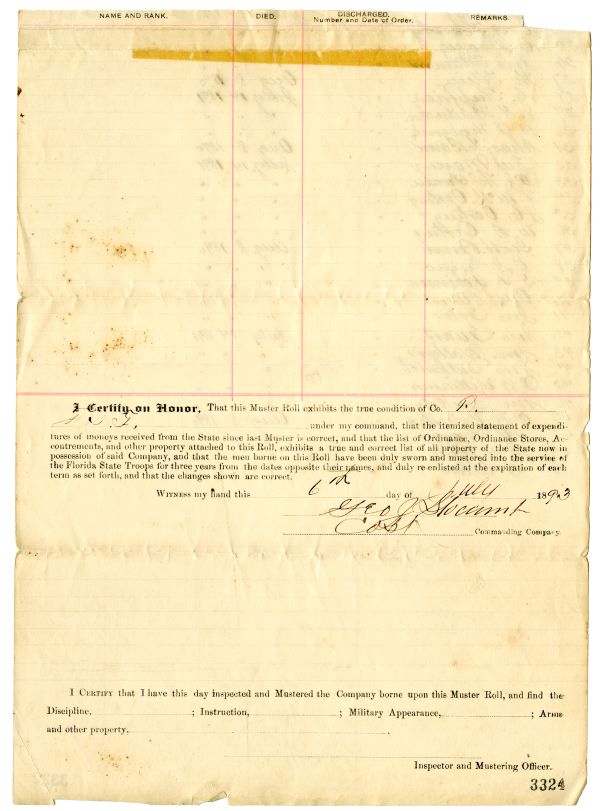 NAME AND RANK. DIED. DISCHARGED. Number and Date of Order. REMARKS.
I Certify on Honor, That this Muster Roll exhibits the true condition of Co. B.
under my command, that the itemized statement of expendi-
tures of moneys received from the State since last Muster is correct, and that the list of Ordinance, Ordinance Stores, Ac-
coutrements, and other property attached to this Roll, exhibits a true and correct list of all property of the State now in
possession of said Company, and that the men borne on this Roll have been duly sworn and mustered into the service of
the Florida State Troops for three years from the dates opposite their names, and duly re-enlisted at the expiration of each
term as set forth, and that the changes shown are correct.
WITNESS my hand this 6th day of July 1893
Geo J Slocumb
Capt Commanding Company.
I CERTIFY that I have this day inspected and Mustered the Company borne upon this Muster Roll, and find the
Discipline, ; Instruction, ; Military Appearance, ; Arms
and other property,
Inspector and Mustering Officer.
3324